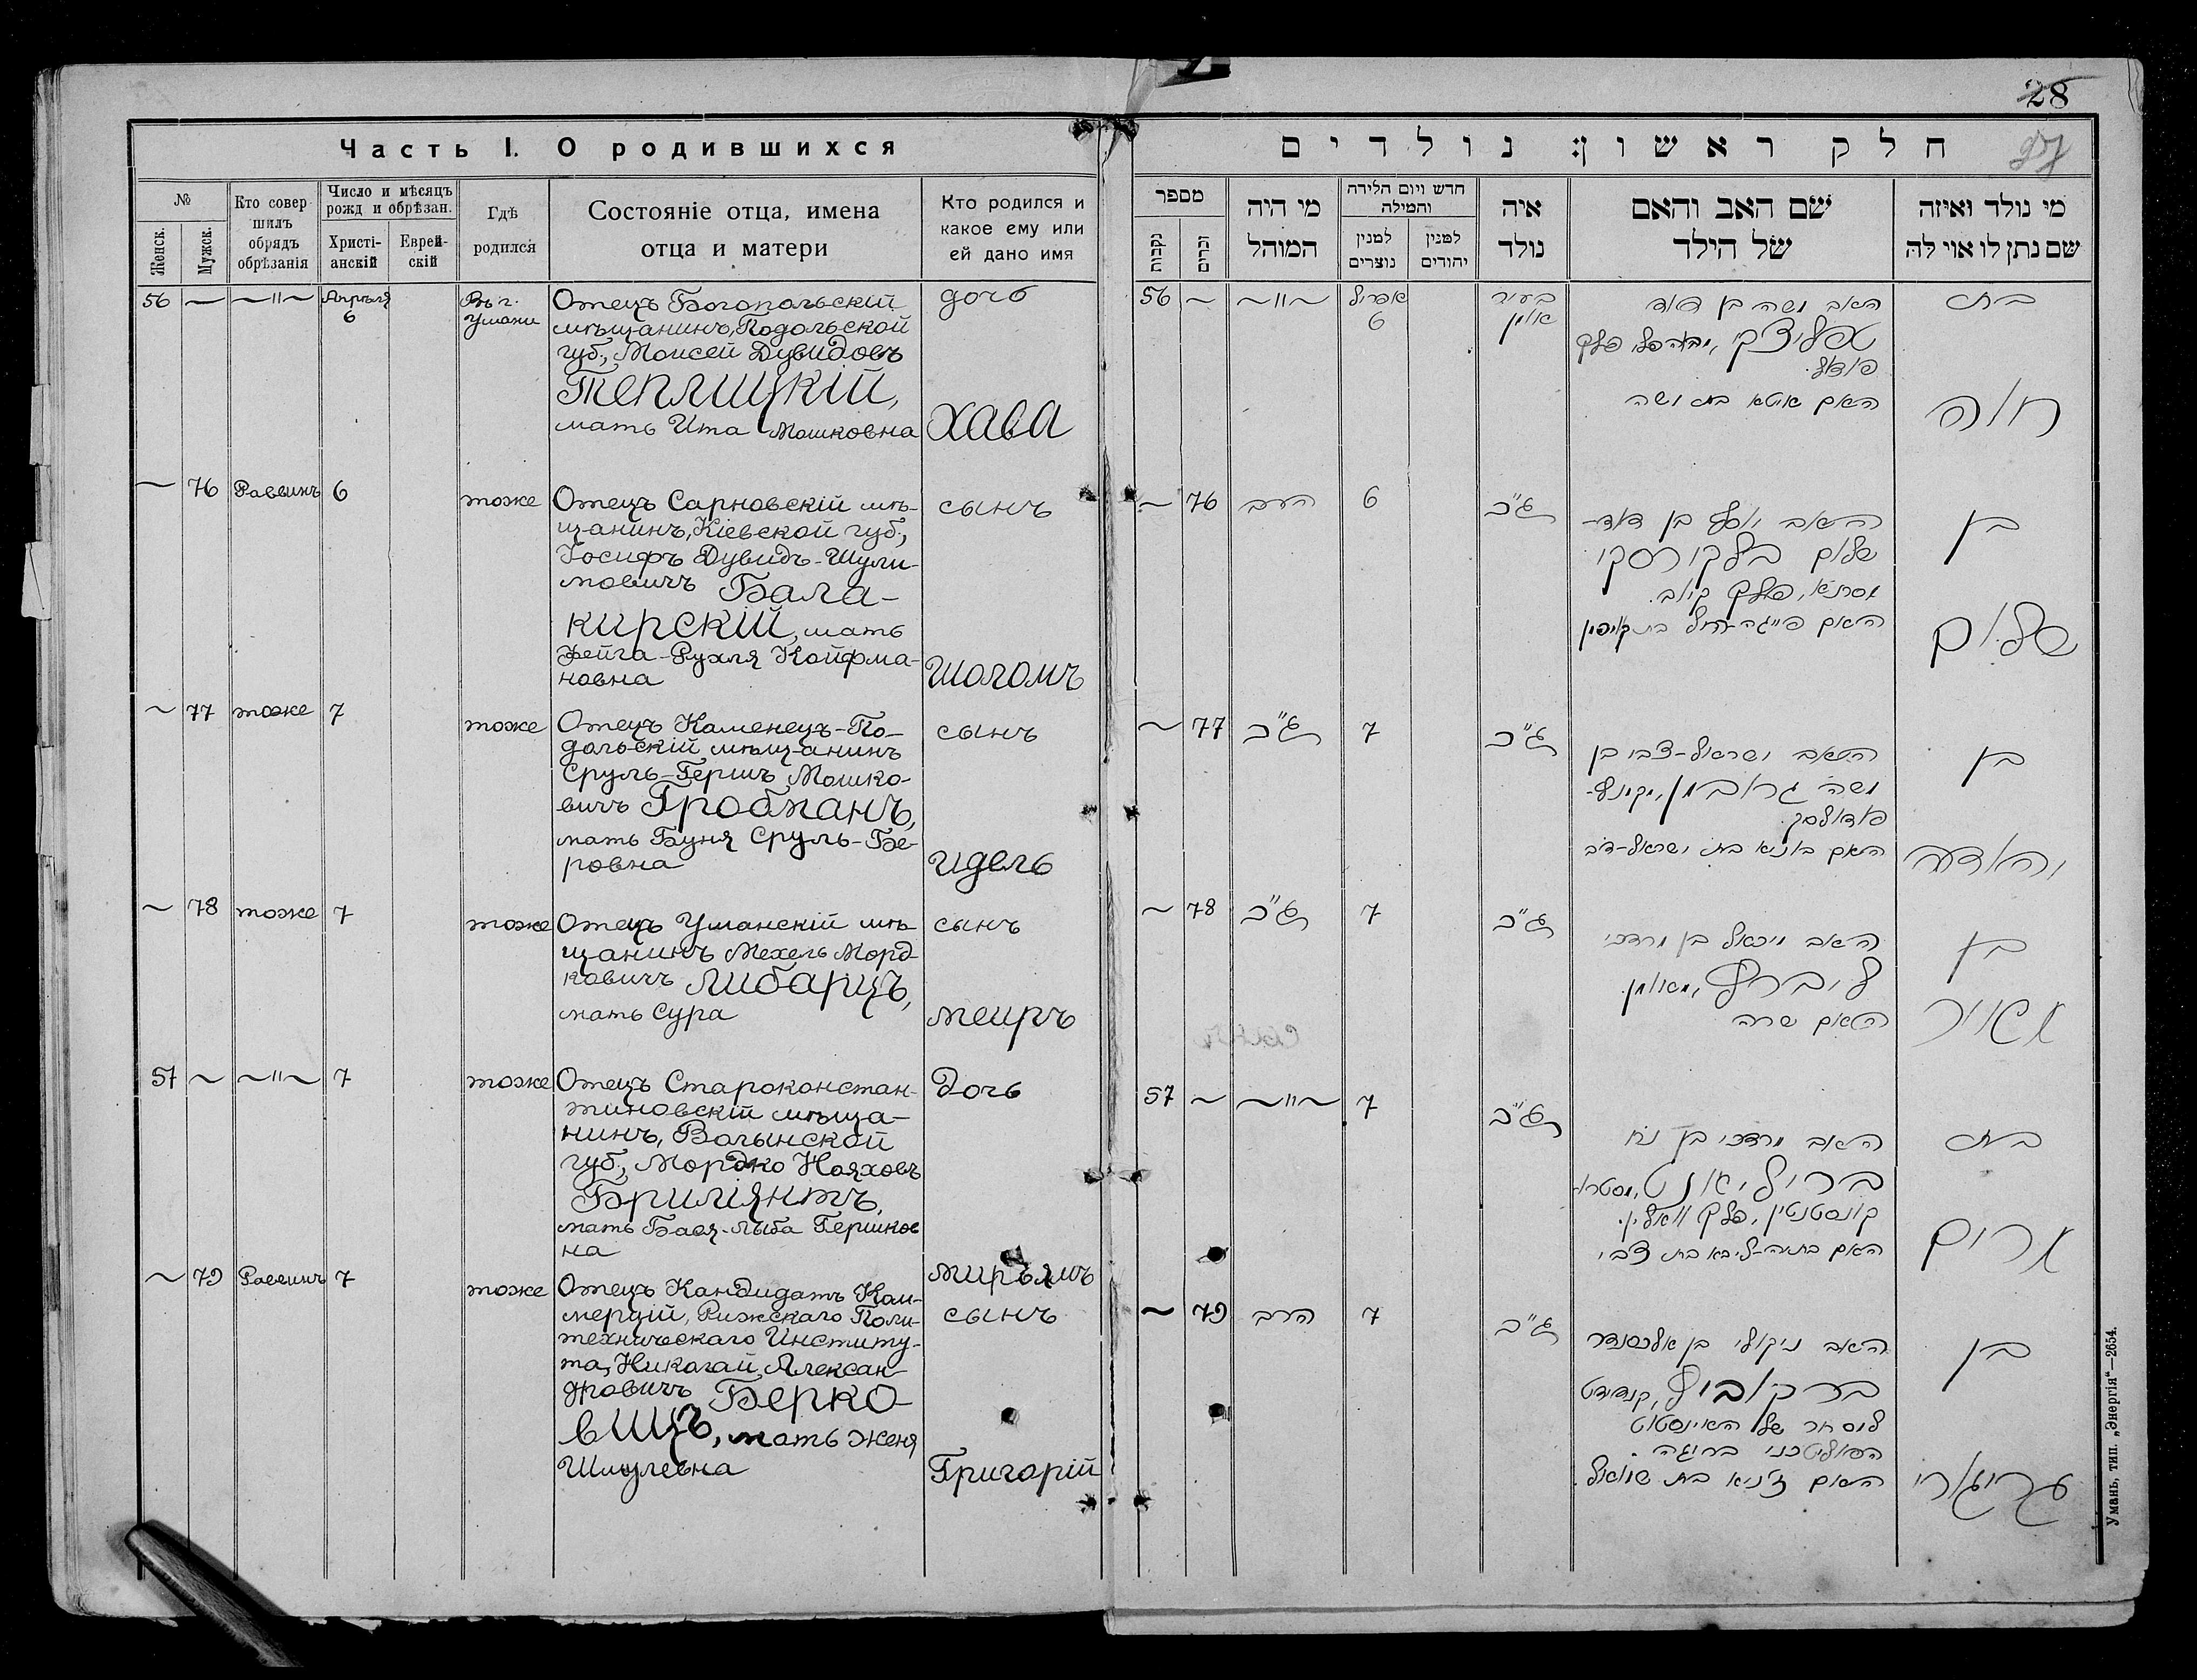 28
27
Часть I. О родившихся
№
Женск.
Мужск.
Кто совер
шилъ
обрядъ
обрѣзанія
Число и мѣсяцъ
рожд и обрѣзан.
Христі-
анскій
Еврей-
скій
Гдѣ
родился
Состояніе отца, имена
отца и матери
Кто родился и
какое ему или
ей дано имя
56 — —"— Апрѣля
6
Въ г.
Умани
Отецъ Богопольскій
мѣщанинъ, Подольской
губ., Моисей Дувидовъ
Теплицкій,
мать Ита Мошковна
дочь
Хава
— 76 Раввинъ 6 тоже
Отецъ Сарновскій мѣ-
щанинъ, Кіевской губ.,
Іосифъ Дувидъ-Шули-
мовичъ Бала-
кирскій, мать
Фейга-Рухля Койфма-
новна
сынъ
Шоломъ
— 77 тоже 7 тоже
Отецъ Каменецъ-По-
дольскій мѣщанинъ
Сруль-Гершъ Мошко-
вичъ Гробманъ,
мать Буня Сруль-Бе-
ровна
сынъ
Идель
— 78 тоже 7 тоже
Отецъ Уманскій мѣ-
щанинъ Мехель Морд-
ковичъ Либарцъ,
мать Сура
сынъ
Меиръ
57 — —"— 7 тоже
Отецъ Староконстан-
тиновскій мѣща-
нинъ, Волынской
губ., Мордко Нояховъ
Бриліянтъ,
мать Бася-Лыба Гершков
на
Дочь
Мирьямъ
— 79 Раввинъ 7 тоже
Отецъ Кандидатъ Ком-
мерцій, Рижскаго Поли-
техническаго Институ-
та, Николай Алексан-
дровичъ Берко-
вицъ, мать Женя
Шмулевна
сынъ
Григорій
חלק ראשון: נולדים
מספר
נקבות
זכרים
מי היה
המוהל
חדש ויום הלידה
והמילה
למנין
נוצרים
למנין
יהודים
איה
נולד
שם האב והאם
של הילד
מי נולד ואיזה
שם נתן לו אוי לה
56 — —"— אפריל
6
בעיר
אומן
האב משה בן דוד
טפליצקי,
פודול.
האם איטא בת משה
בת
חוה
— 76 הרב 6 ג"כ
האב יוסף בן דוד-
שלום בלקירסקי
פלך קיוב.
האם פייגה-רחל בת קויפמן
בן
שלום
— 77 ג"כ 7 ג"כ
האב ישראל-צבי בן
משה גראבמן, מקמנץ-
פודולסק.
האם בוניא בת ישראל-דוב
בן
יהודה
— 78 ג"כ 7 ג"כ
האב מיכאל בן מרדכי
ליברץ, מאומן.
האם שרה
בן
מאיר
57 — —"— 7 ג"כ
האב מרדכי בן נח
בריליאנט, מסטרו-
קונסטנטין, פלך וואלין.
האם בתיה-ליבא בת צבי
בת
מרים
— 79 הרב 7 ג"כ
האב ניקולי בן אלכסנדר
ברקוביץ, קנדידט
למסחר של האינסטוט
הפוליטכני בריגה.
האם ז'ניא בת שמואל.
בן
גריגורי
Умань, тип. „Энергія“—2654.